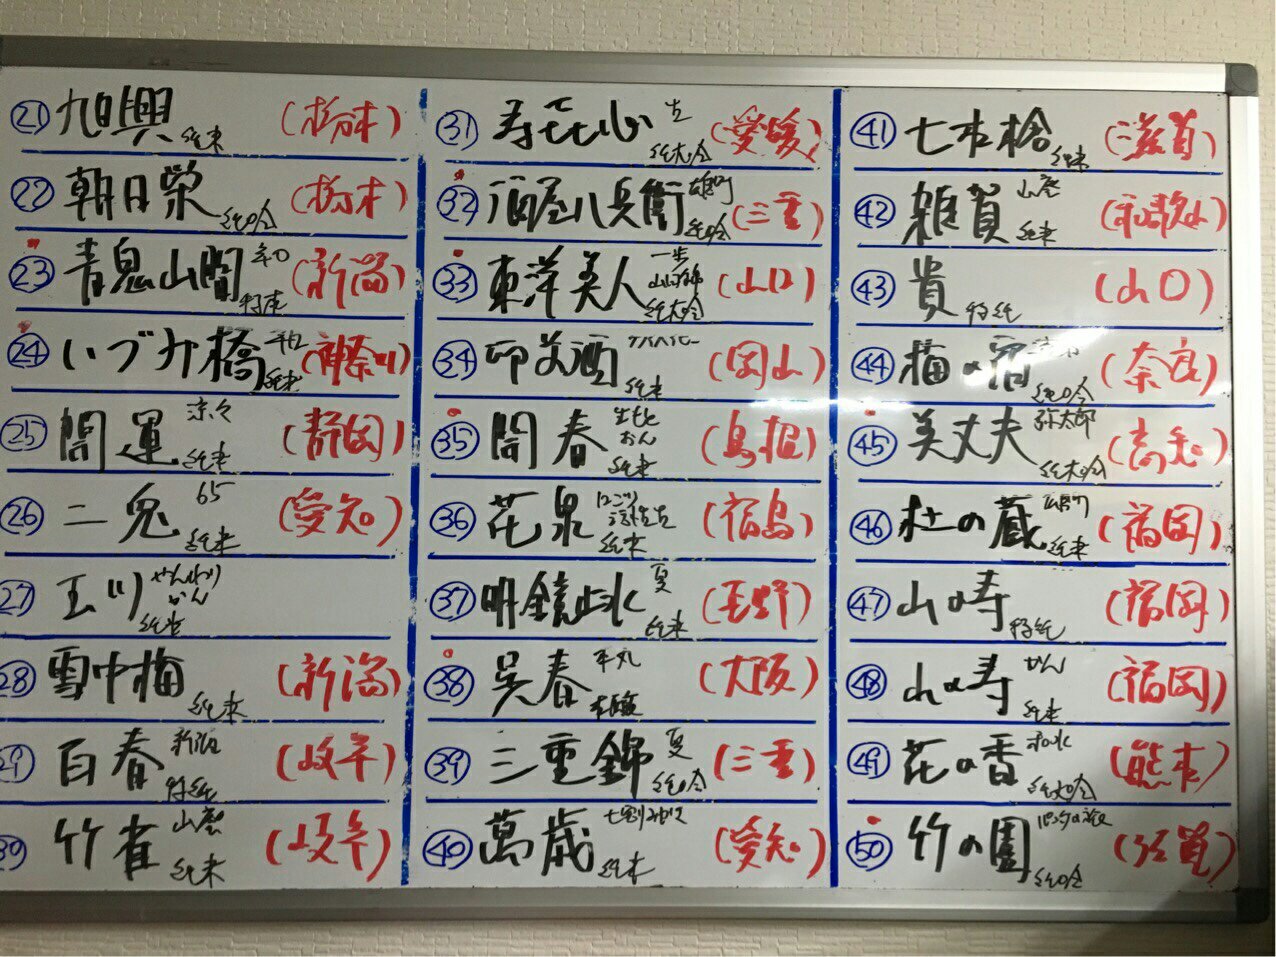 ㉑ 旭興 純米 (栃木)
㉒ 朝日栄 純吟 (栃木)
㉓ 青鬼山間 (新潟)
㉔ いづみ橋 純米 (神奈川)
㉕ 開運 涼々 純米 (静岡)
㉖ 二兎 65 純米 (愛知)
㉗ 玉川 かん
㉘ 雪中梅 純米 (新潟)
㉙ 百春 特純 (岐阜)
㉚ 竹雀 山廃 純米 (岐阜)
㉛ 寿喜心 純大吟 (愛媛)
㉜ 酒屋八兵衛 雄町 純吟 (三重)
㉝ 東洋美人 一歩 山田錦 純大吟 (山口)
㉞ 純米 (岡山)
㉟ 開春 生もと おん 純米 (島根)
㊱ 花泉 にごり 活性生 純米 (福島)
㊲ 明鏡止水 夏 純米 (長野)
㊳ 呉春 本醸 (大阪)
㊴ 三重錦 夏 純吟 (三重)
㊵ 萬歳 七割みがき 純米 (愛知)
㊶ 七本槍 純米 (滋賀)
㊷ 雑賀 山廃 純米 (和歌山)
㊸ 貴 特純 (山口)
㊹ 梅の宿 純吟 (奈良)
㊺ 美丈夫 弥太郎 純大吟 (高知)
㊻ 杜の蔵 雄町 純米 (福岡)
㊼ 山の寿 特純 (福岡)
㊽ 山の寿 かん 純米 (福岡)
㊾ 花の香 和水 純大吟 (熊本)
㊿ 竹の園 純吟 (佐賀)